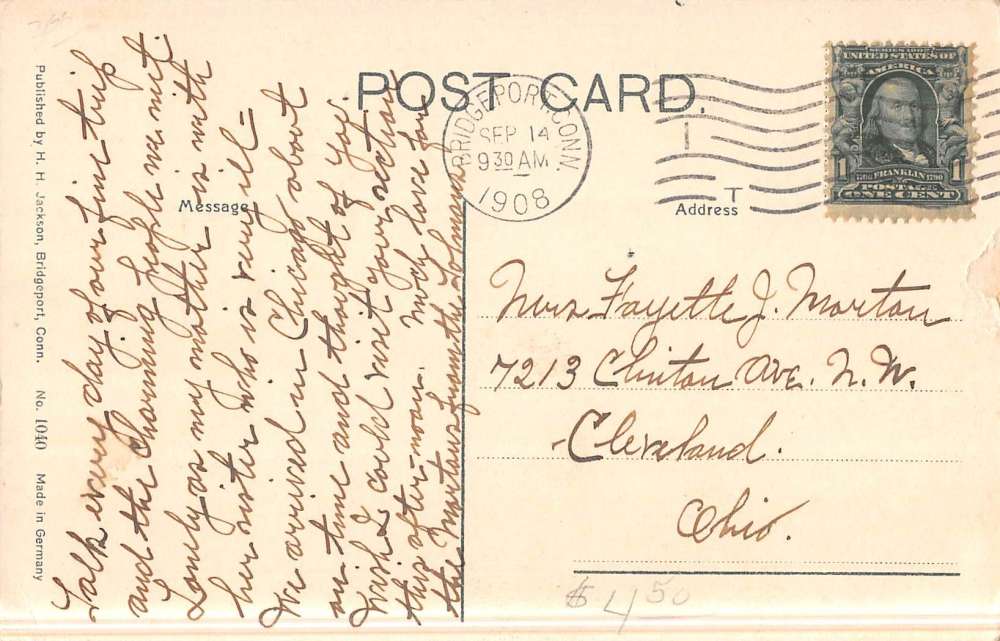 POST CARD.
Message
Address
Published by H. H. Jackson, Bridgeport, Conn. No. 1040 Made in Germany
BRIDGEPORT, CONN.
SEP 14
9 30 AM
1908
SERIES 1902
UNITED STATES OF
AMERICA
1 1
1706 FRANKLIN 1790
POSTAGE
ONE CENT
Talk every day of our fine trip
and the charming people we met.
Lonely as my mother is with
her sister who is very ill-
We arrived in Chicago about
on time and thought of you.
Wish I could visit your section
this after-noon. Much love for
the Mortons from the
Mrs. Fayette J. Morton
7213 Clinton Ave. N. W.
Cleveland.
Ohio.
$ 4 50